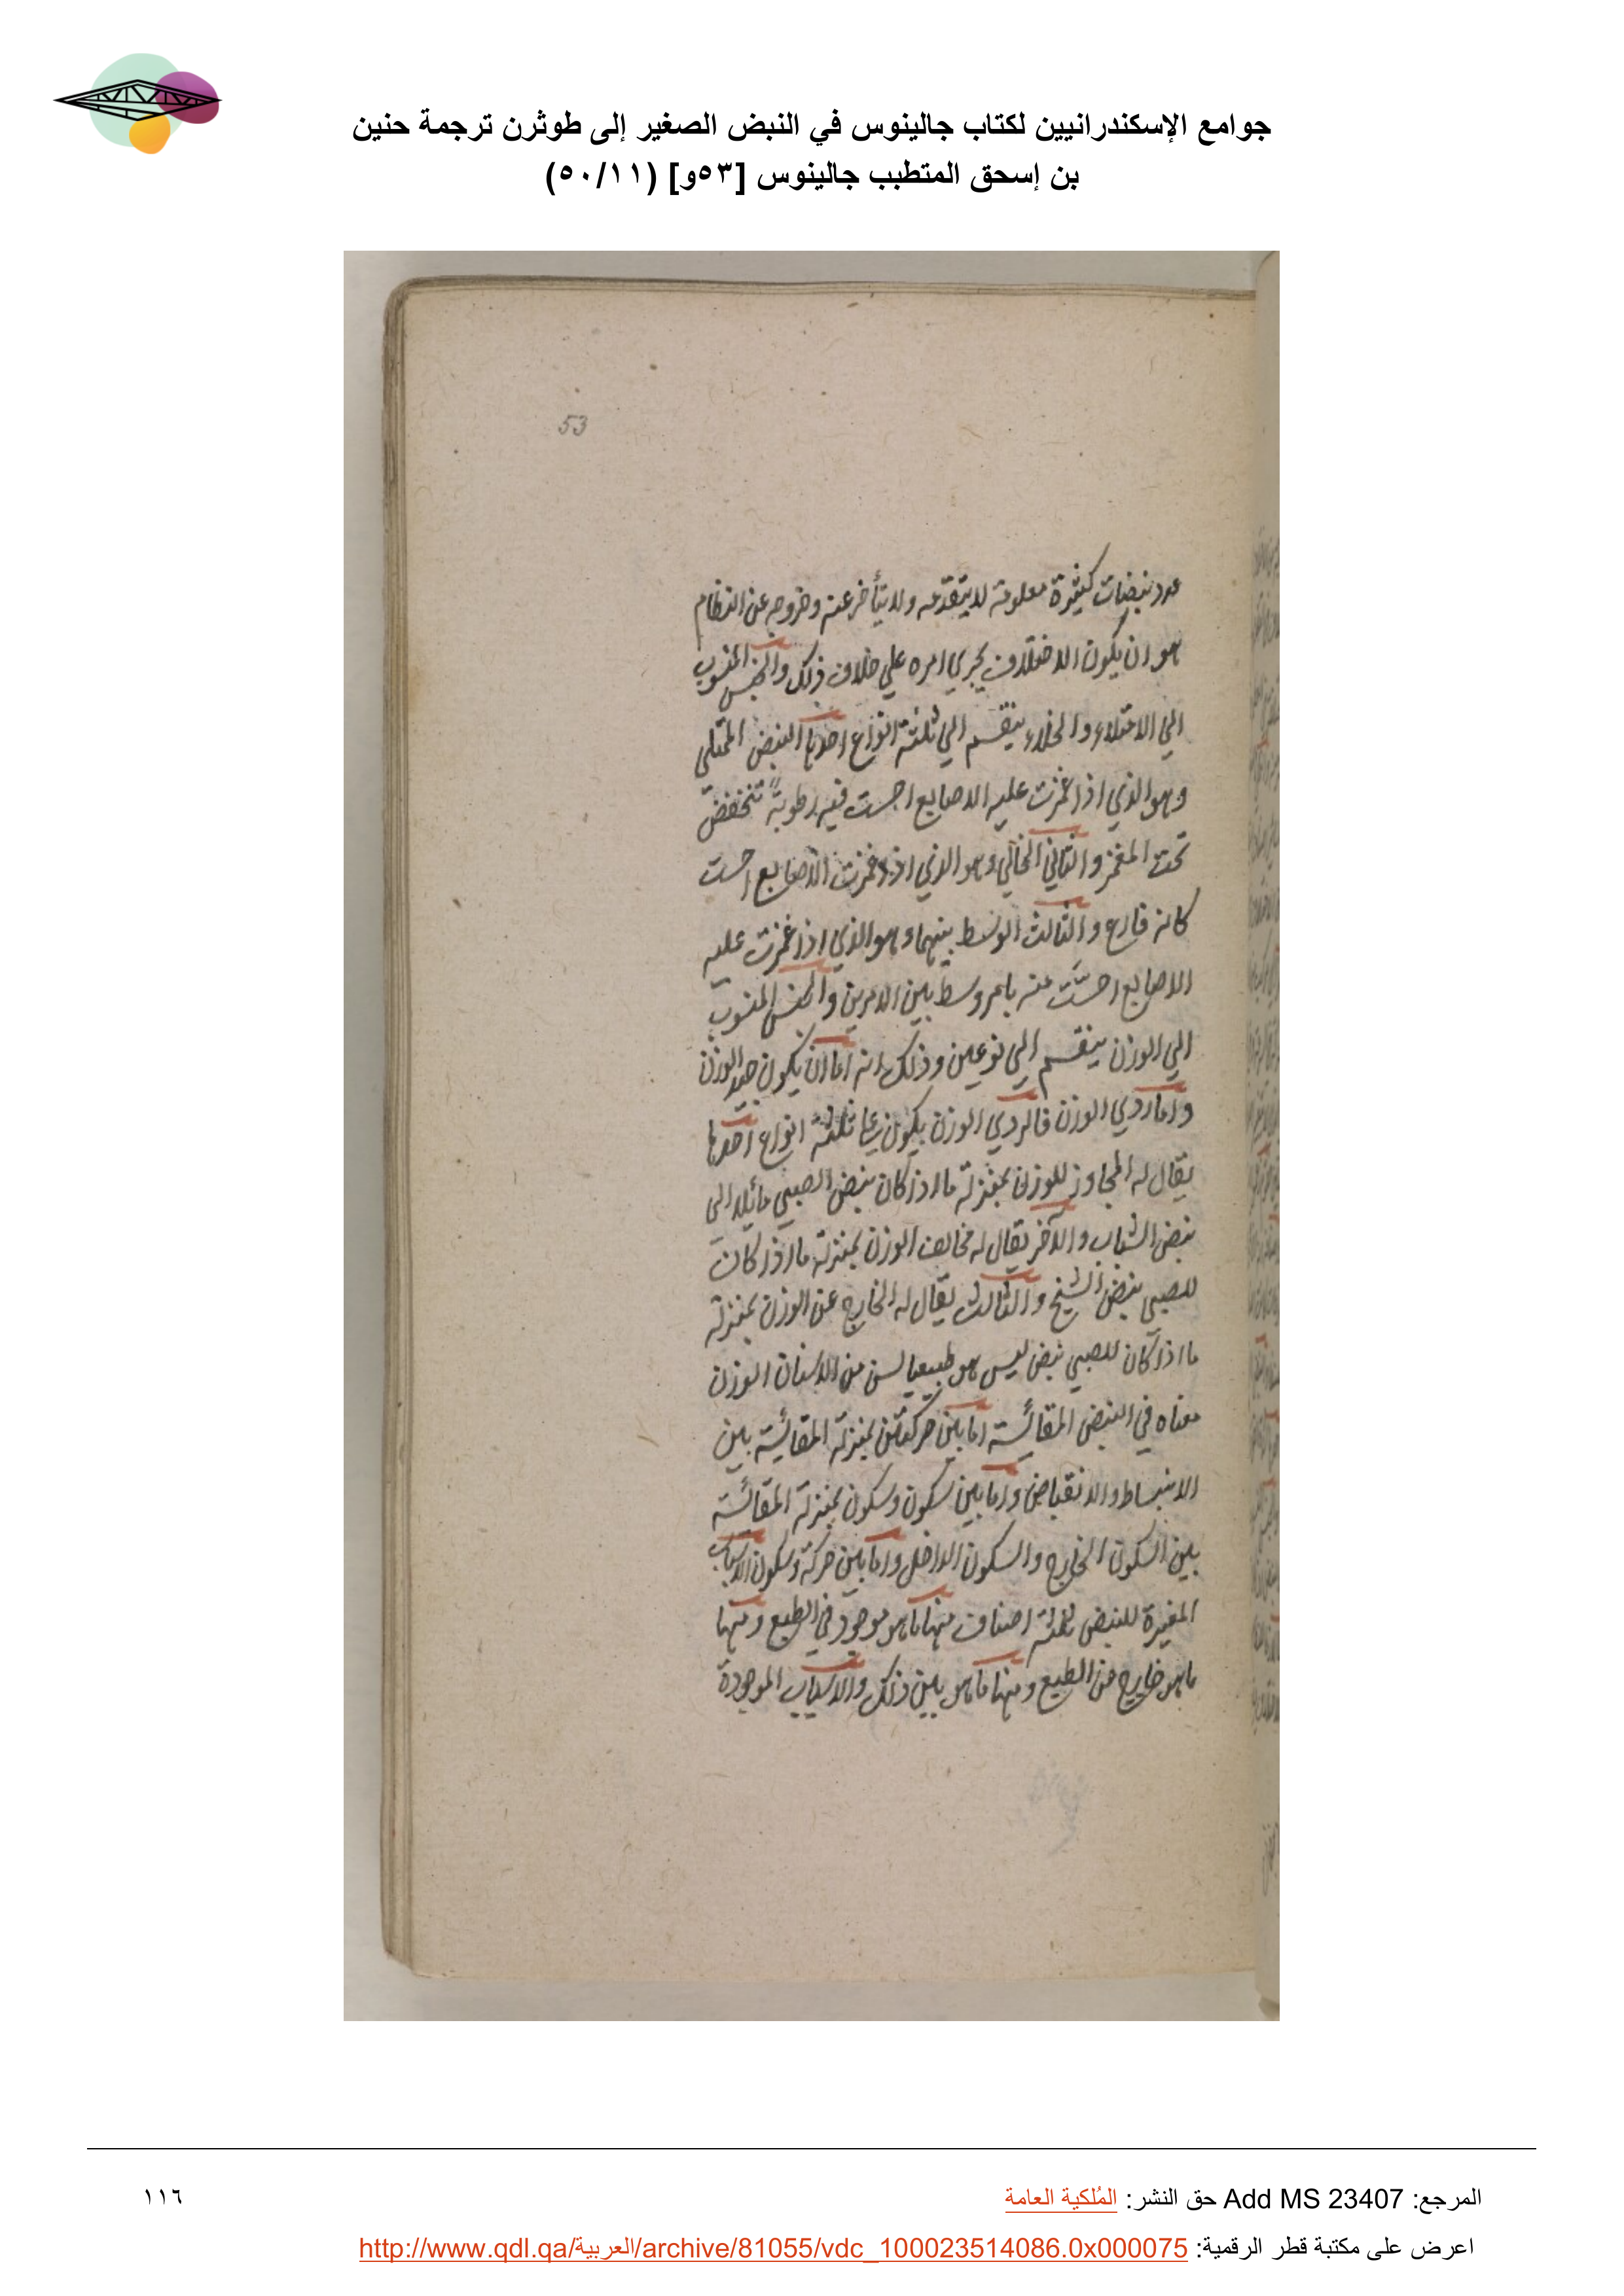 جوامع الإسكندرانيين لكتاب جالينوس في النبض الصغير إلى طوثرن ترجمة حنين
بن إسحق المتطبب جالينوس [٥٣و] (٥٠/١١)
53
عدد نبضات كثيرة معلومة لا يتقدمه ولا يتأخر عنه وخروجه عن النظام
هو ان يكون الاختلاف يجري امره علي خلاف ذلك والجنس المنسوب
الي الامتلاء والخلاء ينقسم الي ثلثة انواع احدها النبض الممتلي
وهو الذي اذا غمزت عليه الاصابع احست فيه رطوبة تنخفض
تحت المغمز والثاني الخالي وهو الذي اذا غمزت الاصابع احست
كانه فارغ والثالث الوسط بينهما وهو الذي اذا غمزت عليه
الاصابع احسّت منه بامر وسط بين الامرين والجنس المنسوب
الي الوزن ينقسم الي نوعين وذلك انه اما ان يكون جيد الوزن
واما ردي الوزن فالردي الوزن يكون علي ثلثة انواع احدها
يقال له المجاوز للوزن بمنزلة ما اذا كان نبض الصبي مائلا الي
نبض الشباب والآخر يقال له مخالف الوزن بمنزلة ما اذا كان
للصبي نبض الشيخ والثالث يقال له الخارج عن الوزن بمنزلة
ما اذا كان للصبي نبض ليس هو طبيعيا لسن من الاسنان الوزن
معناه في النبض المقائسة اما بين حركتين بمنزلة المقائسة بين
الانبساط والانقباض واما بين سكون وسكون بمنزلة المقائسة
بين السكون الخارج والسكون الداخل واما بين حركة وسكون الاسباب
المغيرة للنبض ثلثة اصناف منها ما هو موجود في الطبع ومنها
ما هو خارج من الطبع ومنها ما هو بين ذلك والاسباب الموجودة
المرجع: Add MS 23407 حق النشر: المُلكية العامة
١١٦
اعرض على مكتبة قطر الرقمية: http://www.qdl.qa/العربية/archive/81055/vdc_100023514086.0x000075